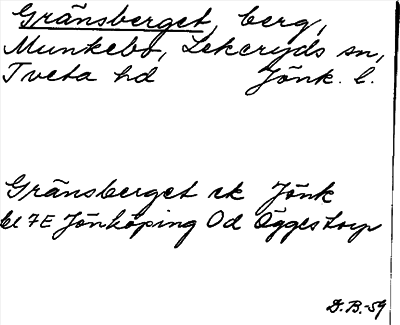 Gränsberget, berg,
Munkebo, Lekeryds sn,
Tveta hd Jönk. l.
Gränsberget rk Jönk
bl 7E Jönköping Od Öggestorp
D.B.-59